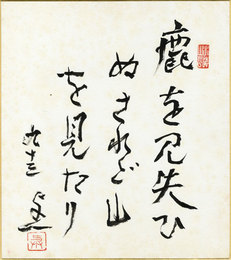 鹿を見失ひ
ぬされど山
を見たり
九十三